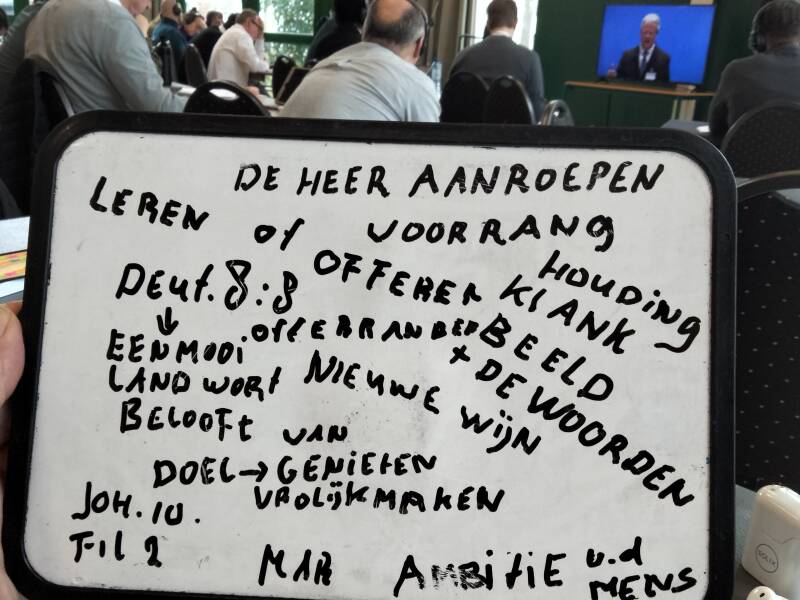 DE HEER AANROEPEN
LEREN of VOORRANG
HOUDING
OFFEREN KLANK
Deut. 8:8
BEELD
+ DE WOORDEN
EEN MOOI
LAND WORT NIEUWE WIJN
BELOOFT VAN
DOEL → GENIETEN
VROLIJK MAKEN
JOH. 10.
Fil 2
MAR AMBITIE v.d
MENS